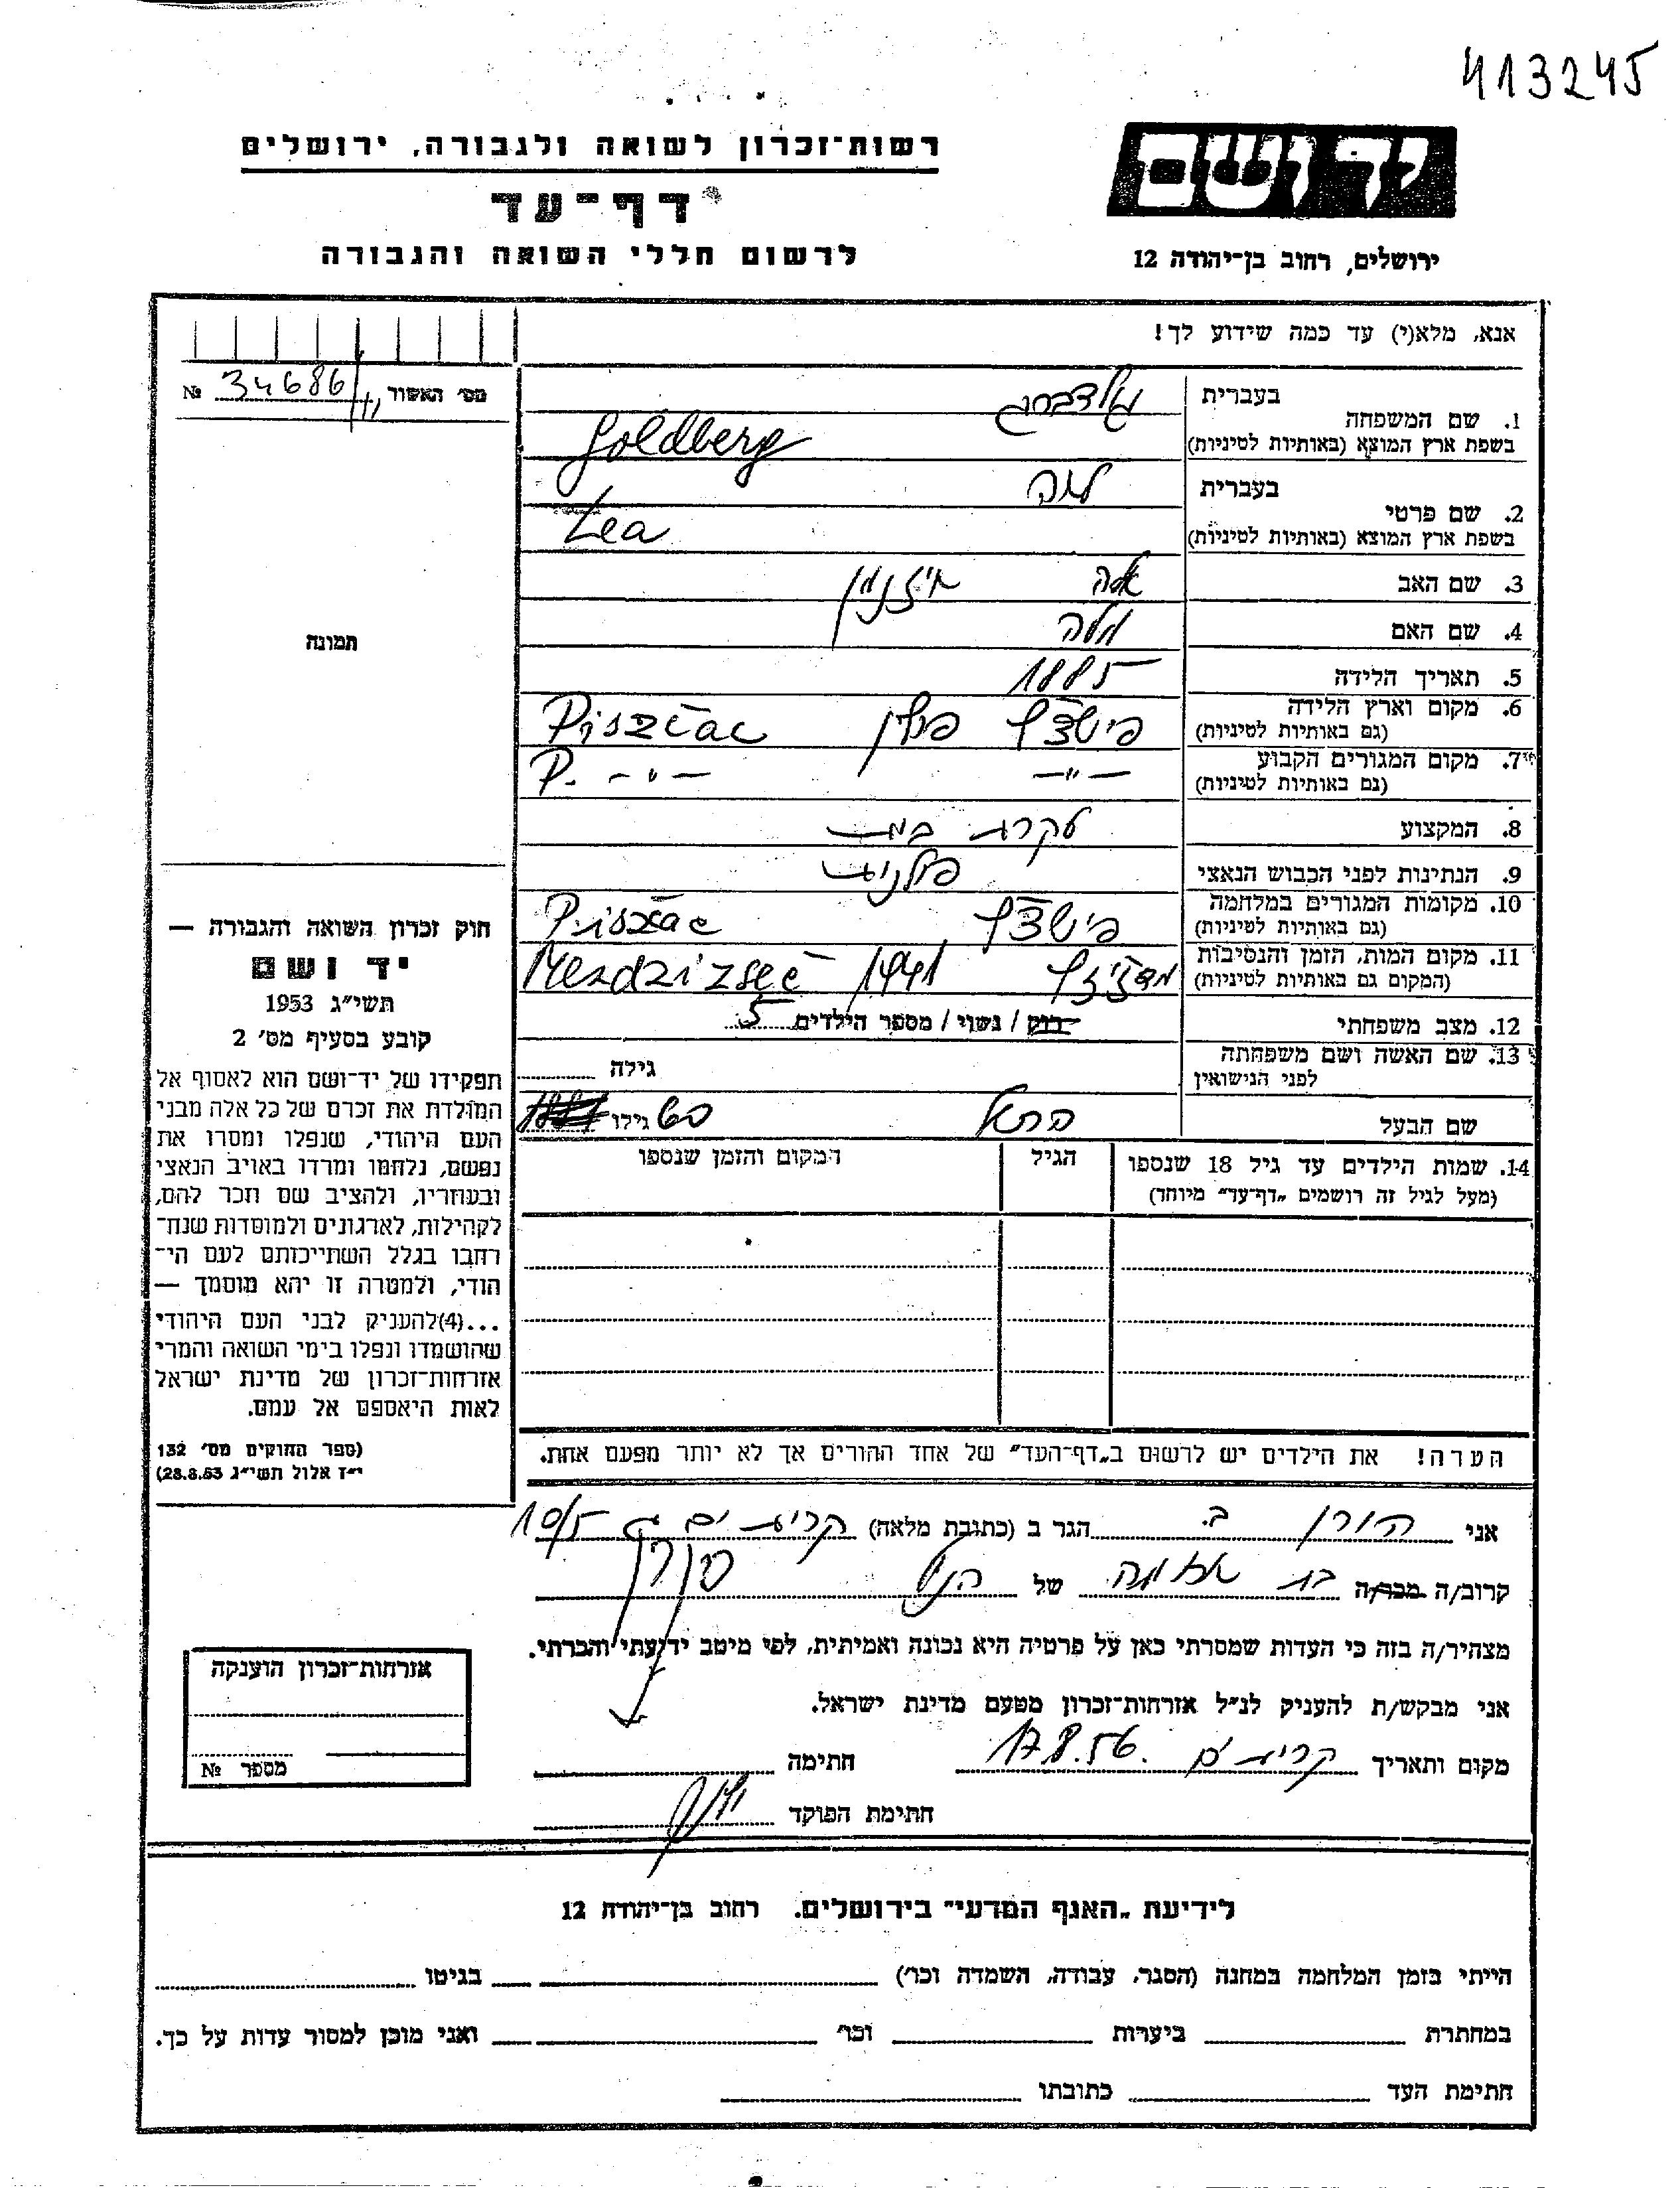 413245
יד ושם
ירושלים, רחוב בן־יהודה 12
רשות־זכרון לשואה ולגבורה, ירושלים
דף־עד
לרשום חללי השואה והגבורה
אנא, מלא(י) עד כמה שידוע לך!
מס׳ האשור 34686 №
תמונה
1. שם המשפחה
בעברית גולדברג
בשפת ארץ המוצא (באותיות לטיניות) Goldberg
2. שם פרטי
בעברית לאה
בשפת ארץ המוצא (באותיות לטיניות) Lea
3. שם האב
4. שם האם
5. תאריך הלידה 1885
6. מקום וארץ הלידה פישצץ פולין Piszczac
(גם באותיות לטיניות)
7. מקום המגורים הקבוע —״— P. —״—
(גם באותיות לטיניות)
8. המקצוע עקרת בית
9. הנתינות לפני הכבוש הנאצי פולנית
10. מקומות המגורים במלחמה פישצץ Piszzac
(גם באותיות לטיניות)
11. מקום המות, הזמן והנסיבות 1941
(המקום גם באותיות לטיניות)
12. מצב משפחתי רווק / נשוי / מספר הילדים 5
13. שם האשה ושם משפחתה
לפני הנישואין גילה
שם הבעל גילו
14. שמות הילדים עד גיל 18 שנספו
(מעל לגיל זה רושמים „דף־עד״ מיוחד)
הגיל
המקום והזמן שנספו
הערה! את הילדים יש לרשום ב„דף־העד״ של אחד ההורים אך לא יותר מפעם אחת.
חוק זכרון השואה והגבורה —
יד ושם
תשי״ג 1953
קובע בסעיף מס׳ 2
תפקידו של יד־ושם הוא לאסוף אל
המולדת את זכרם של כל אלה מבני
העם היהודי, שנפלו ומסרו את
נפשם, נלחמו ומרדו באויב הנאצי
ובעוזריו, ולהציב שם וזכר להם,
לקהילות, לארגונים ולמוסדות שנח־
רבו בגלל השתייכותם לעם הי־
הודי, ולמטרה זו יהא מוסמך —
...(4)להעניק לבני העם היהודי
שהושמדו ונפלו בימי השואה והמרי
אזרחות־זכרון של מדינת ישראל
לאות היאספם אל עמם.
(ספר החוקים מס׳ 132
י״ז אלול תשי״ג 28.8.53)
אני הורן ב. הגר ב (כתובת מלאה) קרית ים ג 10/5
קרוב/ה מכר/ה של
מצהיר/ה בזה כי העדות שמסרתי כאן על פרטיה היא נכונה ואמיתית, לפי מיטב ידיעתי והכרתי.
אני מבקש/ת להעניק לנ״ל אזרחות־זכרון מטעם מדינת ישראל.
מקום ותאריך קרית ים 17.8.56. חתימה
חתימת הפוקד
אזרחות־זכרון הוענקה
מספר №
לידיעת „האגף המדעי״ בירושלים. רחוב בן־יהודה 12
הייתי בזמן המלחמה במחנה (הסגר, עבודה, השמדה וכו׳) בגיטו
במחתרת ביערות וכו׳ ואני מוכן למסור עדות על כך.
חתימת העד כתובתו